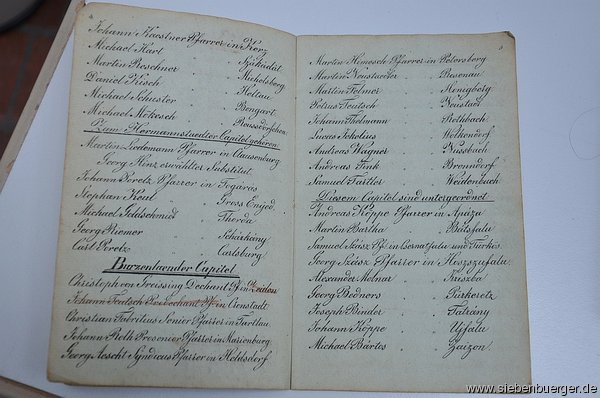 4
Johann Kaestner Pfarrer in Kerz
Michael Hart " Szakadat
Martin Reschner " Michelsberg
Daniel Kisch " Heltau
Michael Schuster " Bongart
Michael Mökesch " Reussdörfchen
Zum Hermannstaedter Capitel gehören
Martin Liedemann Pfarrer in Clausenburg
Georg Hinz erwählter Substitut
Johann Peretz Pfarrer in Fogaras
Stephan Keul " Gross Enyed
Michael Goldschmidt " Thorda
Georg Riemer " Scharkány
Carl Peretz " Carlsburg
Burzenlaender Capitel
Christoph von Greissing Dechant Pf. in Zeiden
Johann Teutsch ProDechant Pf. in Cronstadt
Christian Fabritius Senior Pfarrer in Tartlau
Johann Roth Prosenior Pfarrer in Marienburg
Georg Aescht Syndicus Pfarrer in Heldsdorf
5
Martin Hinesch Pfarrer in Petersberg
Martin Neustaedter " Rosenau
Martin Folmer " Honigberg
Petrus Teutsch " Neustadt
Johann Thelmann " Rothbach
Lucas Jekelius " Wolkendorf
Andreas Wagner " Nussbach
Andreas Fink " Brenndorf
Samuel Tartler " Weidenbach
Diesem Capitel sind untergeordnet
Andreas Köppe Pfarrer in Apáza
Martin Bartha " Bátsfalu
Samuel Szász Pf. in Csernatfalu und Türkös
Georg Szász Pfarrer in Hoszszufalu
Alexander Molnar " Krizba
Georg Bedners " Pürkeretz
Joseph Binder " Tatrang
Johann Köppe " Ujfalu
Michael Bártes " Zaizon
www.siebenbuerger.de